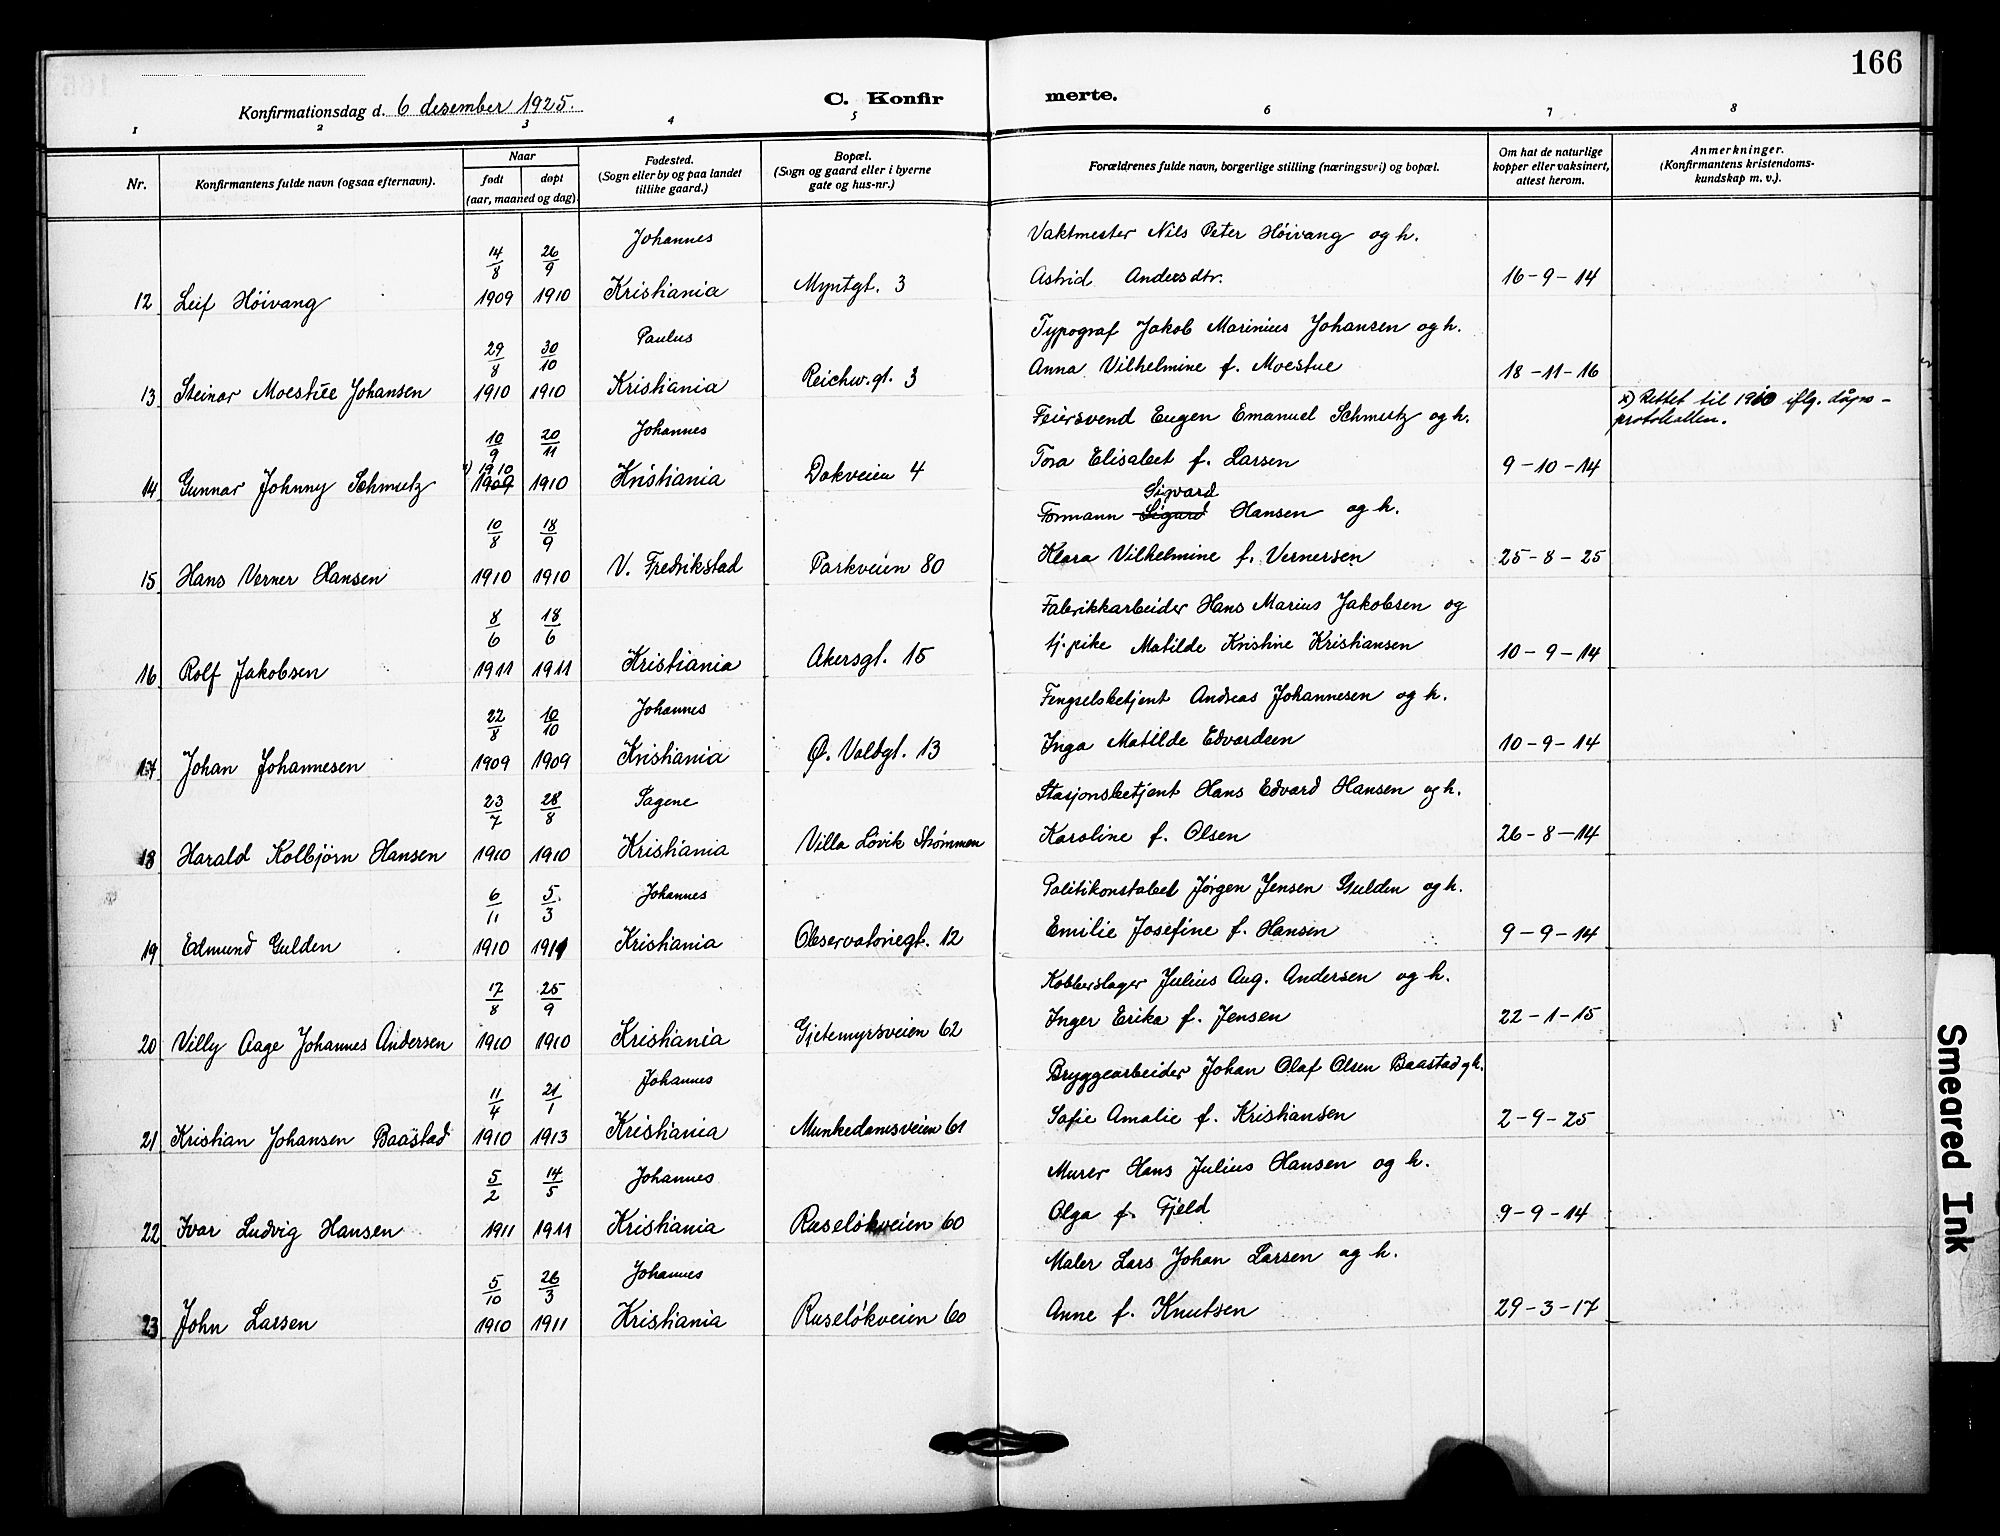 166
Konfirmationsdag d. 6 desember 1925.
C. Konfirmerte.
1 2 3 4 5 6 7 8
Nr.
Konfirmantens fulde navn (ogsaa efternavn).
Naar
født
døpt
(aar, maaned og dag).
Fødested.
(Sogn eller by og paa landet
tillike gaard.)
Bopæl.
(Sogn og gaard eller i byerne
gate og hus-nr.)
Forældrenes fulde navn, borgerlige stilling (næringsvei) og bopæl.
Om hat de naturlige
kopper eller vaksinert,
attest herom.
Anmerkninger.
(Konfirmantens kristendoms-
kundskap m. v.).
14/8 26/9 Johannes Vaktmester Nils Peter Höivang og h.
12 Leif Höivang 1909 1910 Kristiania Myntgt. 3 Astrid Andersdtr. 16-9-14
29/8 30/10 Paulus Typograf Jakob Marinius Johansen og h.
13 Steinar Moestue Johansen 1910 1910 Kristiania Reichw.gt. 3 Anna Vilhelmine f. Moestue 18-11-16
10/9 20/11 Johannes Feiersvend Eugen Emanuel Schmutz og h. x) Rettet til 1910 iflg. dåps-
protokollen.
x) 1910
14 Gunnar Johnny Schmutz 1909 1910 Kristiania Dokveien 4 Tora Elisabet f. Larsen 9-10-14
Sigvard
10/8 18/9 Formann Sigurd Hansen og h.
15 Hans Verner Hansen 1910 1910 V. Fredrikstad Parkveien 80 Klara Vilhelmine f. Vernersen 25-8-25
8/6 18/6 Fabrikkarbeider Hans Marius Jakobsen og
16 Rolf Jakobsen 1911 1911 Kristiania Akersgt. 15 tj.pike Matilde Kristine Kristiansen 10-9-14
22/8 10/10 Johannes Fengselsbetjent Andreas Johannesen og h.
17 Johan Johannesen 1909 1909 Kristiania Ø. Voldgt. 13 Inga Matilde Edvardsen 10-9-14
23/7 28/8 Sagene Stasjonsbetjent Hans Edvard Hansen og h.
18 Harald Kolbjörn Hansen 1910 1910 Kristiania Villa Lövik Strömmen Karoline f. Olsen 26-8-14
6/11 5/3 Johannes Politikonstabel Jørgen Jensen Gulden og h.
19 Edmund Gulden 1910 1911 Kristiania Observatoriegt. 12 Emilie Josefine f. Hansen 9-9-14
17/8 25/9 Kobberslager Julius Aug. Andersen og h.
20 Villy Aage Johannes Andersen 1910 1910 Kristiania Gjetemyrsveien 62 Inger Erika f. Jensen 22-1-15
11/4 21/1 Johannes Bryggearbeider Johan Olaf Olsen Baastad og h.
21 Kristian Johansen Baastad 1910 1913 Kristiania Munkedamsveien 61 Sofie Amalie f. Kristiansen 2-9-25
5/2 14/5 Johannes Murer Hans Julius Hansen og h.
22 Ivar Ludvig Hansen 1911 1911 Kristiania Ruseløkveien 60 Olga f. Fjeld 9-9-14
5/10 26/3 Johannes Maler Lars Johan Larsen og h.
23 John Larsen 1910 1911 Kristiania Ruseløkveien 60 Anne f. Knutsen 29-3-17
Smeared Ink